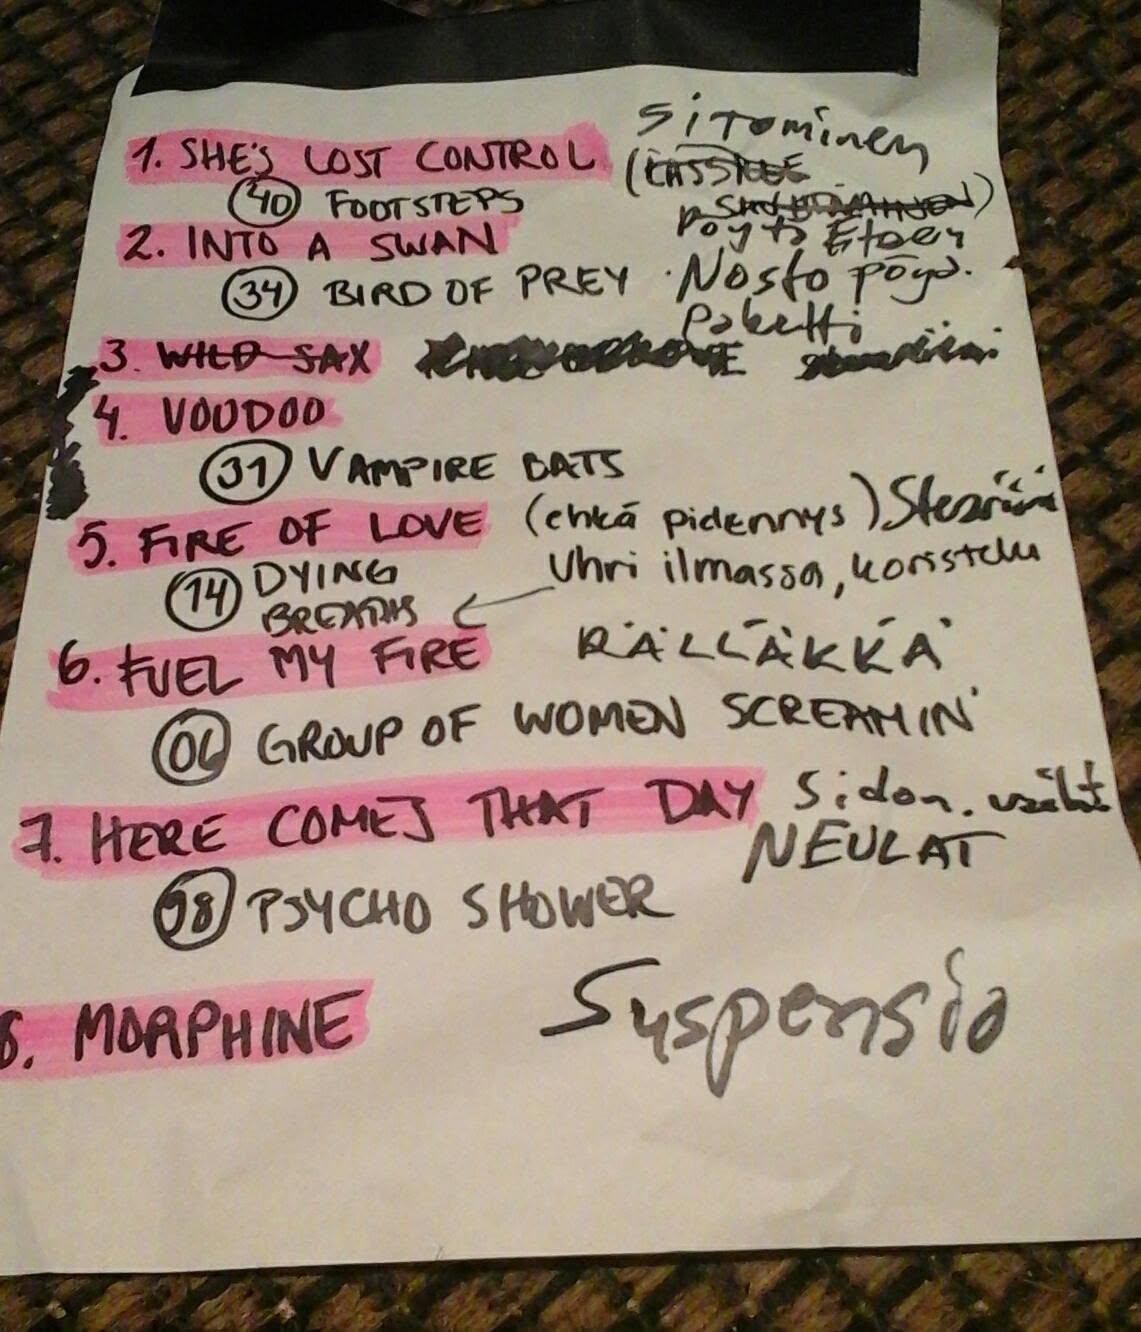 1. SHE'S LOST CONTROL Sitominen
40 FOOTSTEPS pöytä Eteen
2. INTO A SWAN
34 BIRD OF PREY · Nosto pöyd.
paketti
3. WILD SAX
4. VOODOO
31 VAMPIRE BATS
5. FIRE OF LOVE (ehkä pidennys) Steariini
14 DYING BREATHS Uhri ilmassa, koristelu
6. FUEL MY FIRE RÄLLÄKKÄ
GROUP OF WOMEN SCREAMIN'
7. HERE COMES THAT DAY Sidon.
NEULAT
98 PSYCHO SHOWER
8. MORPHINE Suspensio